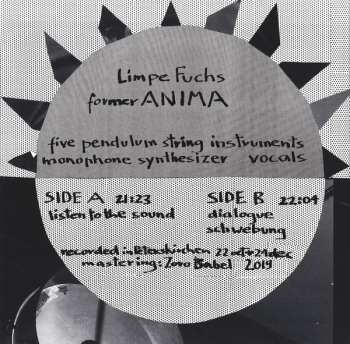 Limpe Fuchs
former ANIMA
five pendulum string instruments
monophone synthesizer vocals
SIDE A 21:23
listen to the sound
SIDE B 22:04
dialogue
schwebung
recorded in Peterskirchen 22 oct + 21 dec
mastering: Zoro Babel 2019